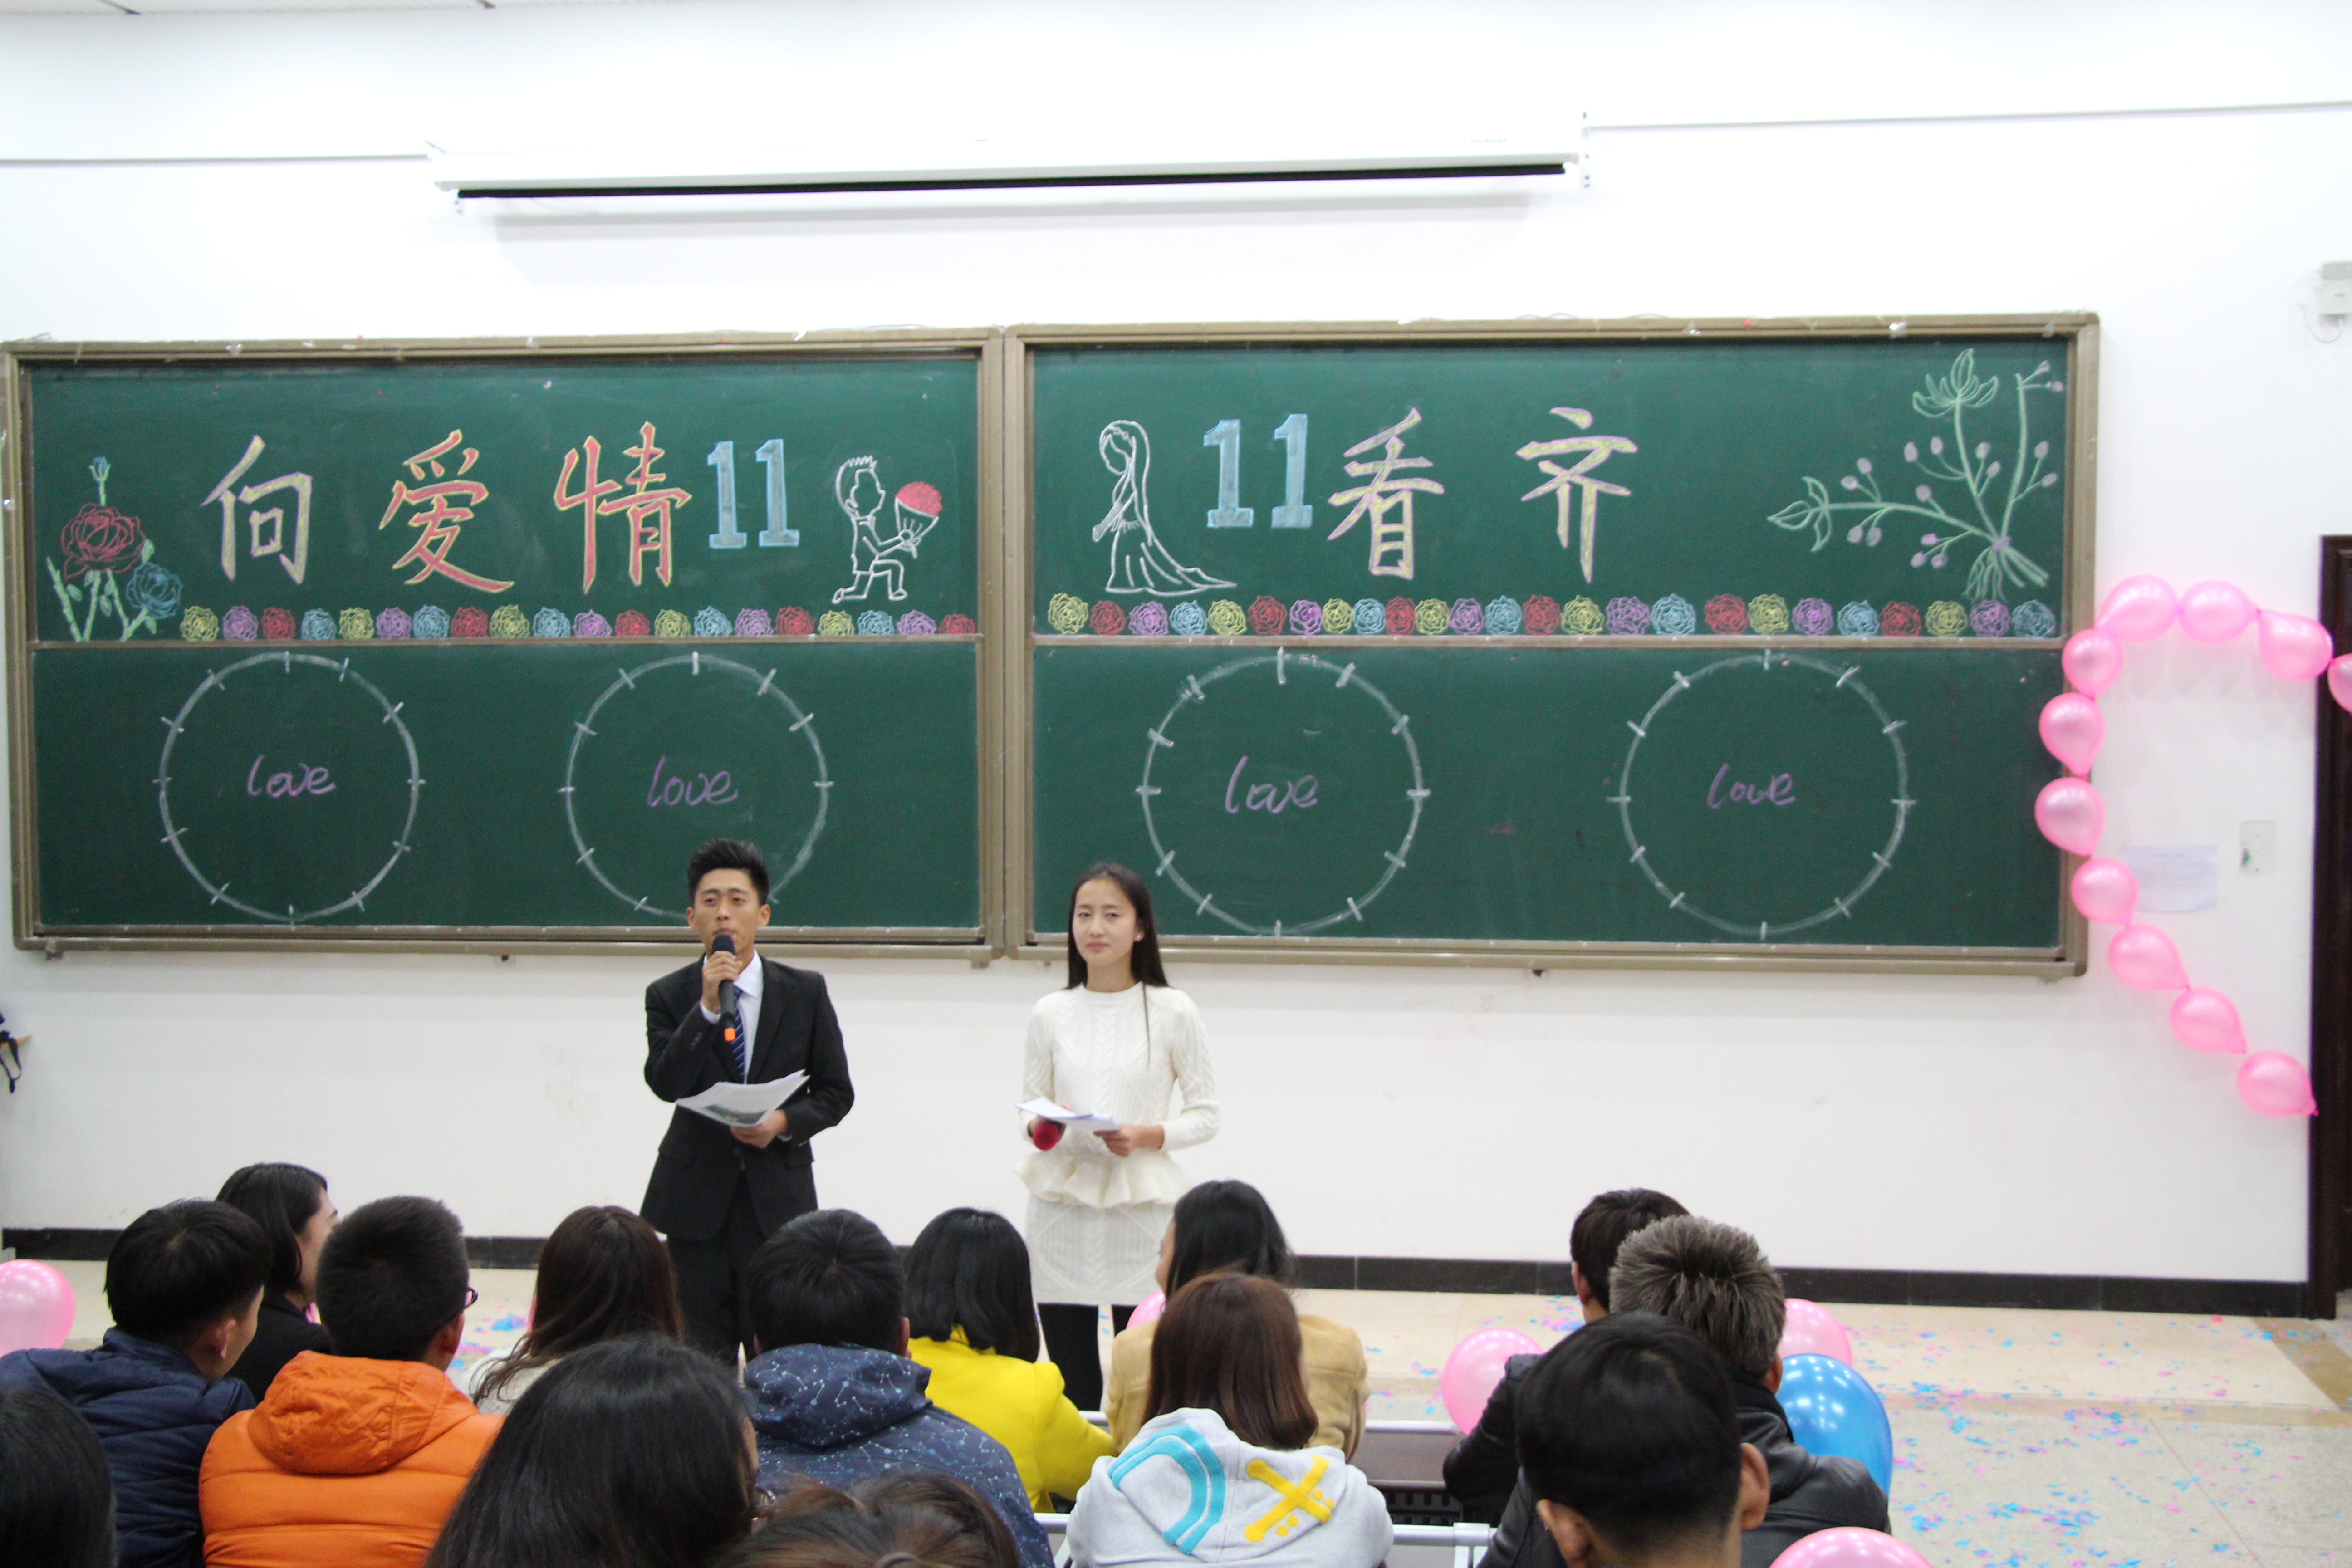 向爱情11
11看齐
love
love
love
love